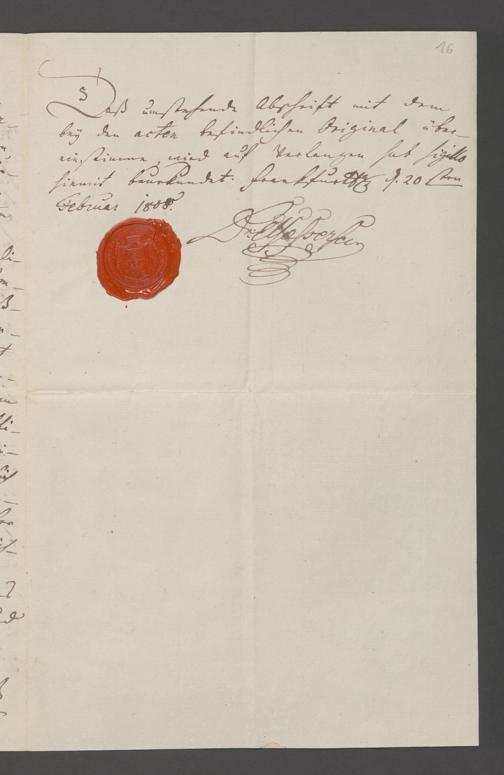 16
Daß umstehende Abschrift mit dem
bey den acten befindlichen Original über-
einstimme, wird auf Verlangen sub sigillo
hiermit beurkundet. Frankfurt d. 20 sten
Februar 1808.
Dr.